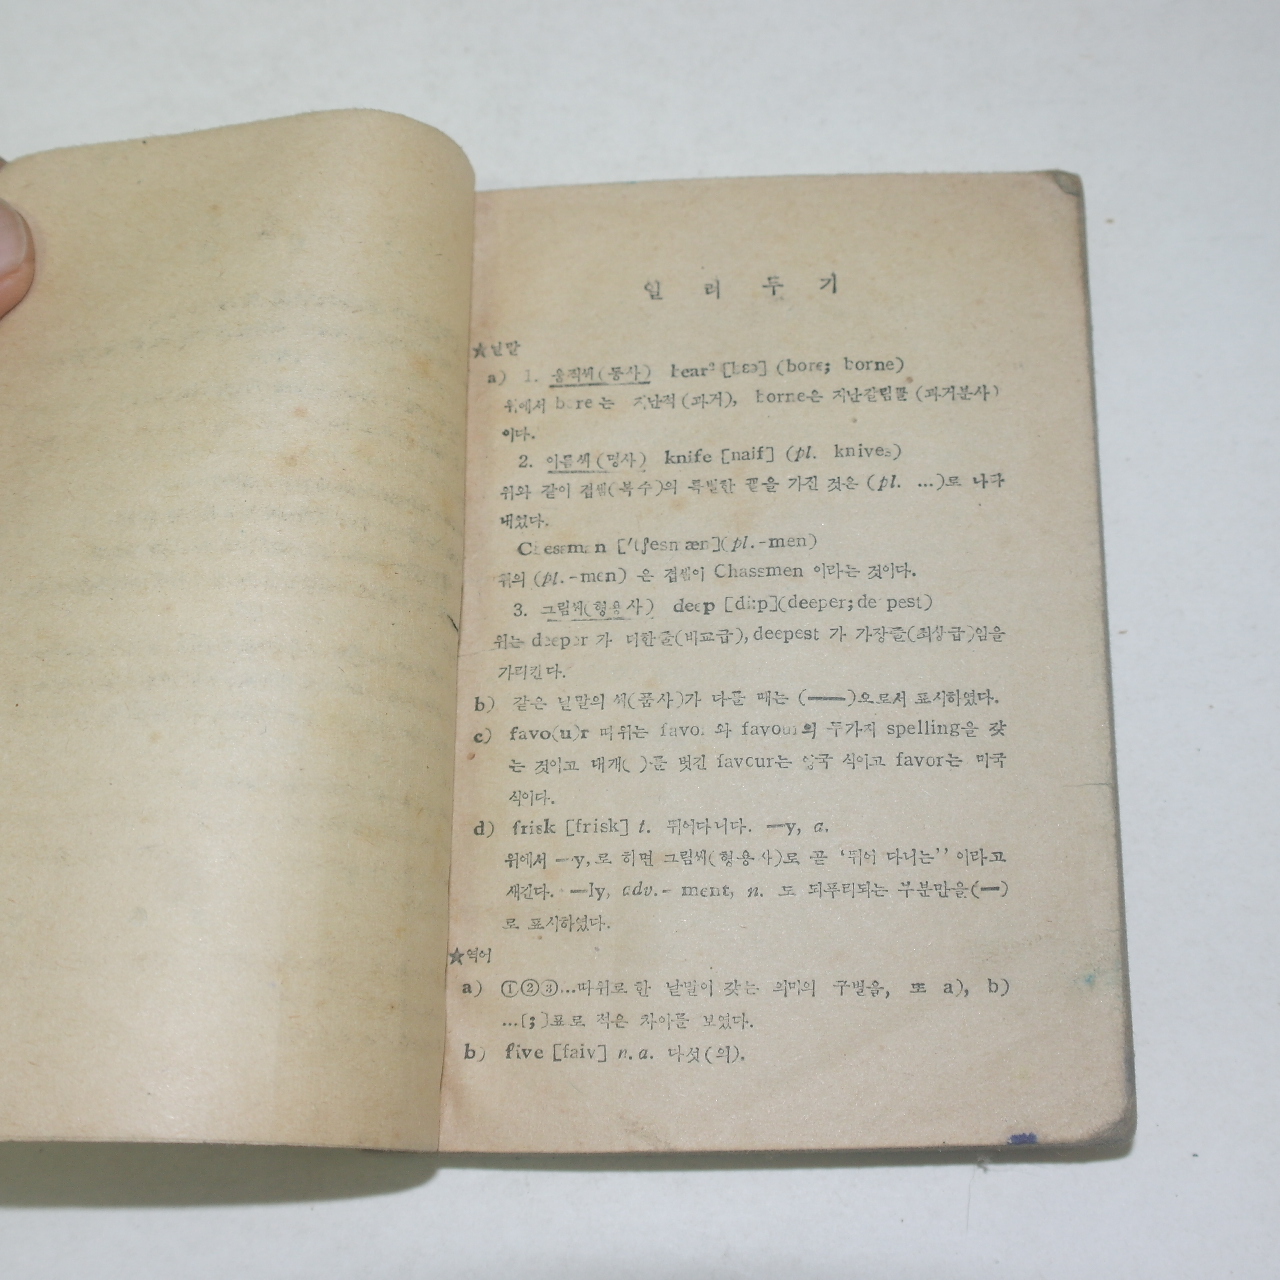 일 러 두 기
★낱말
a) 1. 움직씨(동사) bear² [bɛə] (bore; borne)
위에서 bore는 지난적(과거), borne은 지난갈림꼴(과거분사)
이다.
2. 이름씨(명사) knife [naif] (pl. knives)
위와 같이 겹셈(복수)의 특별한 끝을 가진 것은 (pl. ...)로 나구
내었다.
Chessman ['tʃesmæn](pl.-men)
위의 (pl.-men) 은 겹셈이 Chassmen 이라는 것이다.
3. 그림씨(형용사) deep [di:p](deeper; deepest)
위는 deeper 가 더한줄(비교급), deepest 가 가장줄(최상급)임을
가리킨다.
b) 같은 낱말의 씨(품사)가 다를 때는 (——)으로서 표시하였다.
c) favo(u)r 따위는 favor 와 favour의 두가지 spelling을 갖
는 것이고 대개( )를 벗긴 favour는 영국 식이고 favor는 미국
식이다.
d) frisk [frisk] t. 뛰어다니다. —y, a.
위에서 —y,로 히면 그림씨(형용사)로 곧 ‘뛰어 다니는’’ 이라고
새긴다. —ly, adv.- ment, n. 도 되푸리되는 부분만을(—)
로 표시하였다.
★역어
a) ①②③...따위로 한 낱말이 갖는 의미의 구별을, 또 a), b)
...[;]표로 적은 차이를 보였다.
b) five [faiv] n. a. 다섯(의).